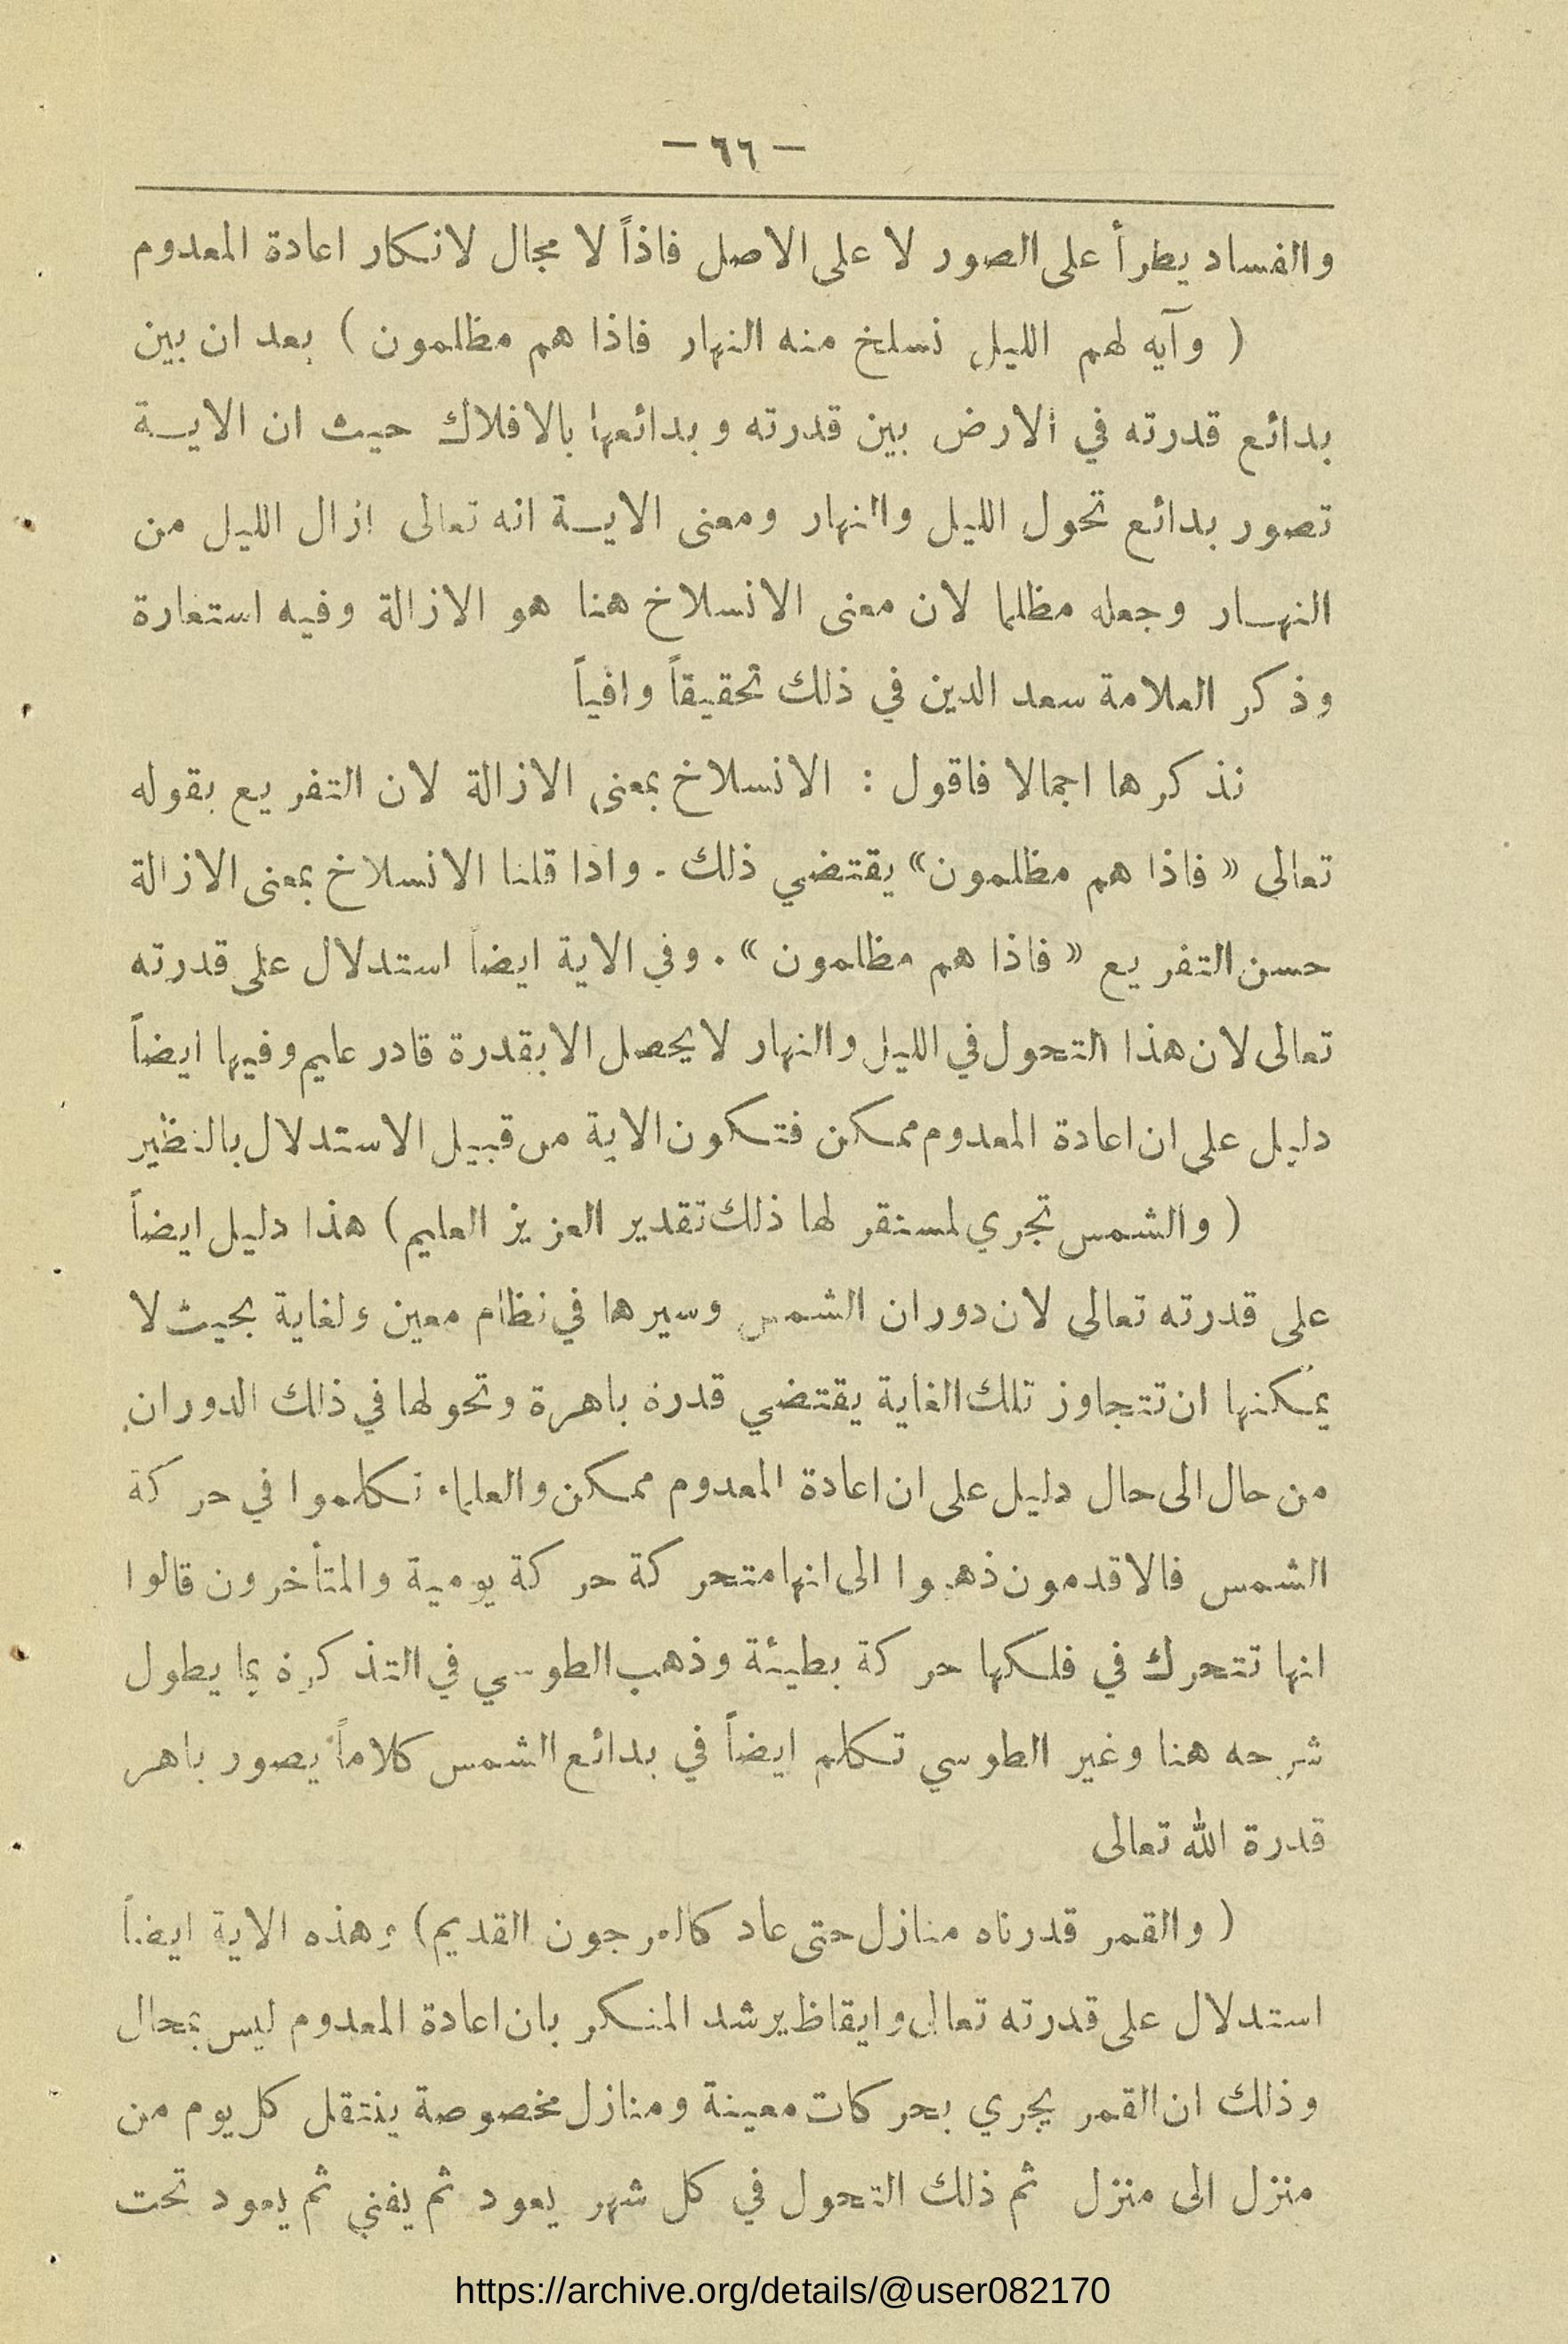 — ٦٦ —
والفساد يطرأ على الصور لا على الاصل فاذاً لا مجال لانكار اعادة المعدوم
( وآيه لهم الليل نسلخ منه النهار فاذا هم مظلمون ) بعد ان بين
بدائع قدرته في الارض بين قدرته وبدائعها بالافلاك حيث ان الايـة
تصور بدائع تحول الليل والنهار ومعنى الايـة انه تعالى ازال الليل من
النهـار وجعله مظلما لان معنى الانسلاخ هنا هو الازالة وفيه استعارة
وذكر العلامة سعد الدين في ذلك تحقيقاً وافياً
نذكرها اجمالا فاقول : الانسلاخ بمعنى الازالة لان التفريع بقوله
تعالى « فاذا هم مظلمون» يقتضي ذلك . واذا قلنا الانسلاخ بمعنى الازالة
حسن التفريع « فاذا هم مظلمون » . وفي الاية ايضاً استدلال على قدرته
تعالى لان هذا التحول في الليل والنهار لا يحصل الا بقدرة قادر عليم وفيها ايضاً
دليل على ان اعادة المعدوم ممكن فتكون الاية من قبيل الاستدلال بالنظير
( والشمس تجري لمستقر لها ذلك تقدير العزيز العليم ) هذا دليل ايضاً
على قدرته تعالى لان دوران الشمس وسيرها في نظام معين ولغاية بحيث لا
يمكنها ان تتجاوز تلك الغاية يقتضي قدرة باهرة وتحولها في ذلك الدوران
من حال الى حال دليل على ان اعادة المعدوم ممكن والعلماء تكلموا في حركة
الشمس فالاقدمون ذهبوا الى انها متحركة حركة يومية والمتأخرون قالوا
انها تتحرك في فلكها حركة بطيئة وذهب الطوسي في التذكرة بما يطول
شرحه هنا وغير الطوسي تكلم ايضاً في بدائع الشمس كلاماً يصور باهر
قدرة الله تعالى
( والقمر قدرناه منازل حتى عاد كالعرجون القديم ) وهذه الاية ايضاً
استدلال على قدرته تعالى وايقاظ يرشد المنكر بان اعادة المعدوم ليس بمحال
وذلك ان القمر يجري بحركات معينة ومنازل مخصوصة ينتقل كل يوم من
منزل الى منزل ثم ذلك التحول في كل شهر يعود ثم يفنى ثم يعود تحت
https://archive.org/details/@user082170